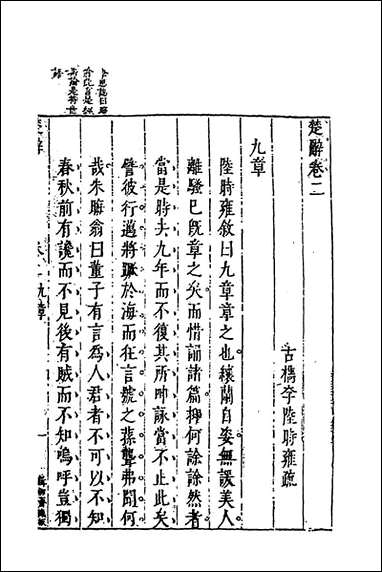 楚辭卷二
古檇李陸時雍疏
九章
陸時雍敘曰九章章之也纕蘭自姿無諼美人
離騷已旣章之矣而惜誦諸篇抑何諗諗然者
當是時去九年而不復其所呻詠當不止此矣
譬彼行邁將蹶於海而在言號之褎聾弗聞何
哉朱晦翁曰董子有言爲人君者不可以不知
春秋前有讒而不見後有賊而不知嗚呼豈獨
楚辭
卷二九章
一